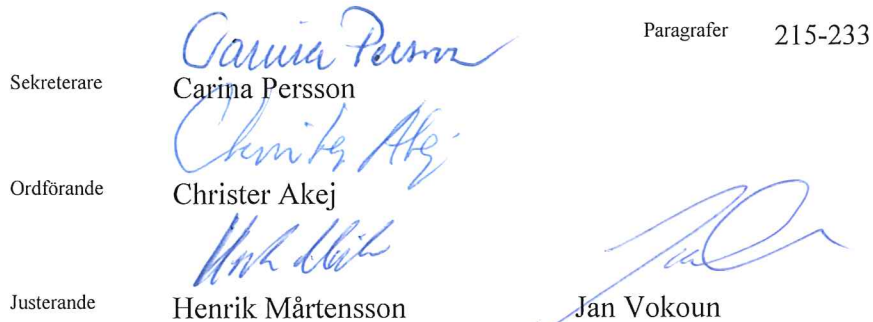 Carina Persson
Paragrafer 215-233
Sekreterare Carina Persson
Christer Akej
Ordförande Christer Akej
Justerande Henrik Mårtensson Jan Vokoun